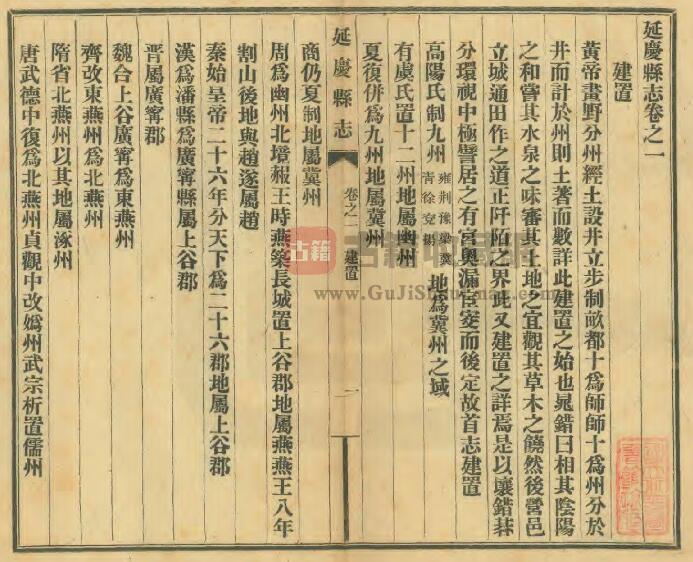 延慶縣志卷之一
建置
黃帝畫野分州經土設井立步制畝都十為師師十為州分於
井而計於州則土著而數詳此建置之始也晁錯曰相其陰陽
之和嘗其水泉之味審其土地之宜觀其草木之饒然後營邑
立城通田作之道正阡陌之界此又建置之詳焉是以壤錯棊
分環視中極譬居之有宮奧漏宧窔而後定故首志建置
高陽氏制九州雍荊豫梁冀青徐兗揚地為冀州之域
有虞氏置十二州地屬幽州
夏復併為九州地屬冀州
延慶縣志 卷之一 建置 一
商仍夏制地屬冀州
周為幽州北境赧王時燕築長城置上谷郡地屬燕燕王八年
割山後地與趙遂屬趙
秦始皇帝二十六年分天下為三十六郡地屬上谷郡
漢為潘縣為廣甯縣屬上谷郡
晉屬廣甯郡
魏合上谷廣甯為東燕州
齊改東燕州為北燕州
隋省北燕州以其地屬涿州
唐武德中復為北燕州貞觀中改媯州武宗析置儒州
古籍
www.GuJiShu